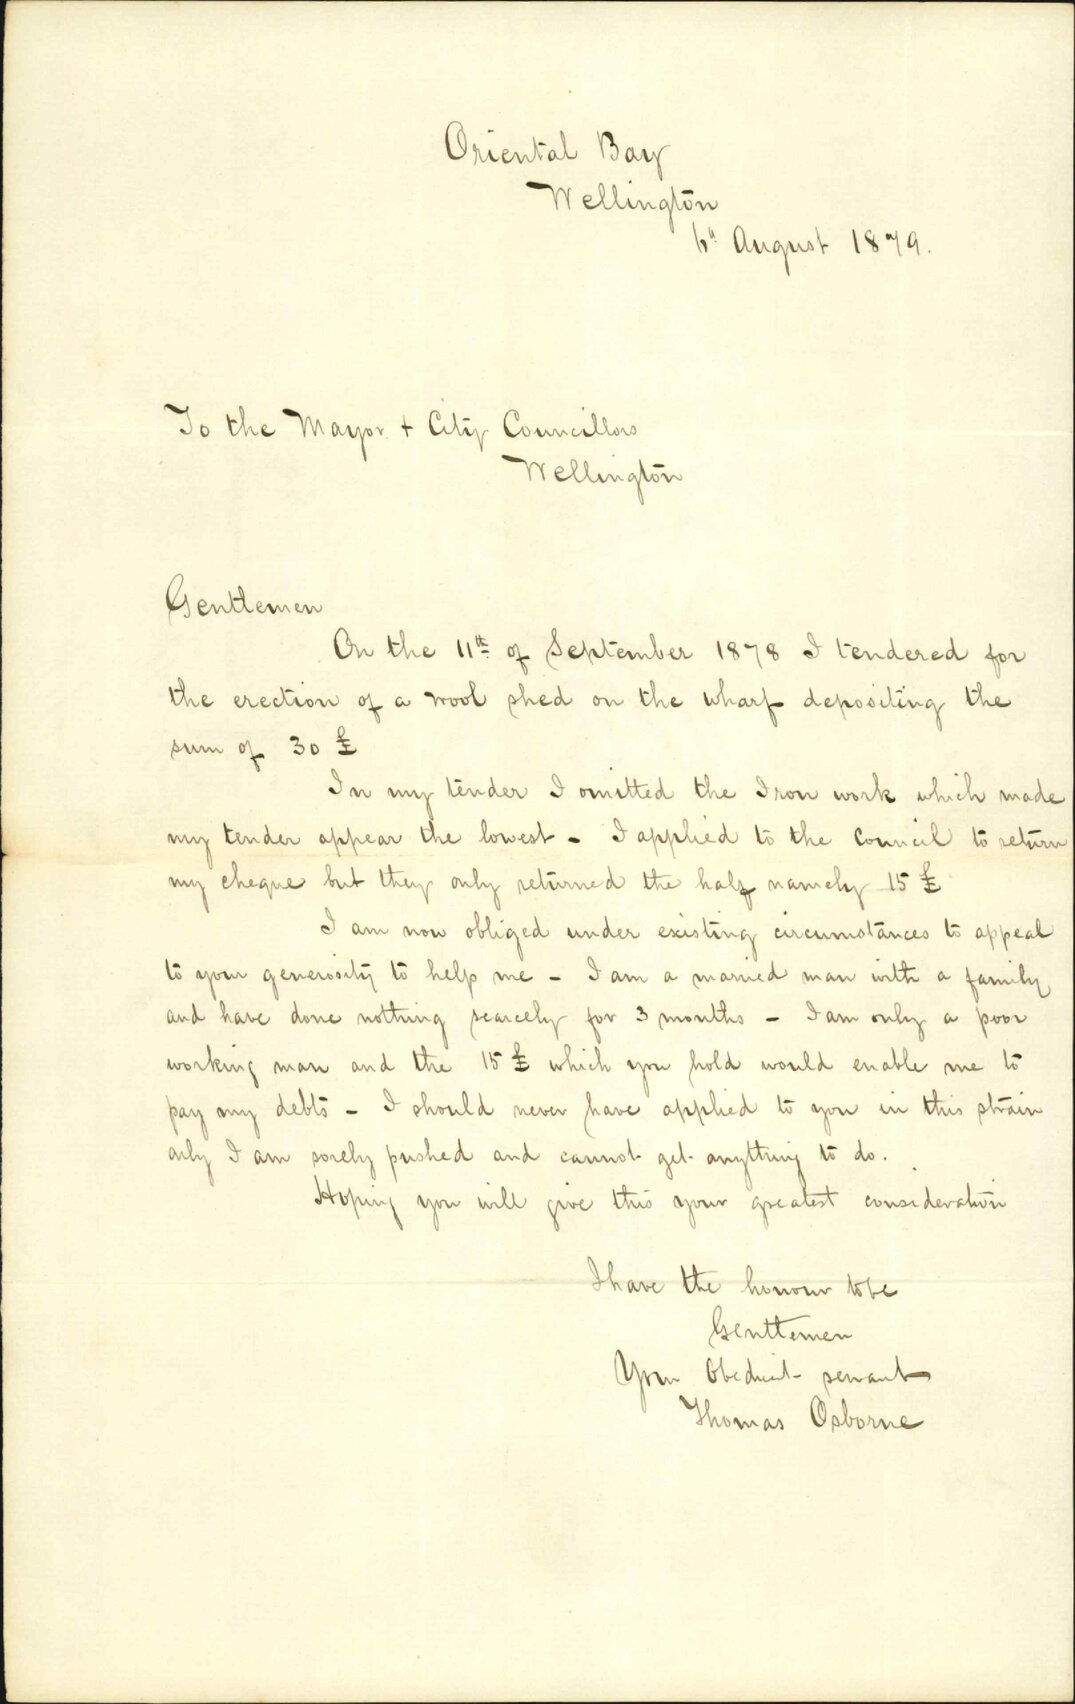 Oriental Bay
Wellington
6" August 1879.
To the Mayor + City Councillors
Wellington
Gentlemen
On the 11th of September 1878 I tendered for
the erection of a wool shed on the wharf depositing the
sum of 30 £
In my tender I omitted the Iron work which made
my tender appear the lowest - I applied to the Council to return
my cheque but they only returned the half namely 15 £
I am now obliged under existing circumstances to appeal
to your generosity to help me - I am a married man with a family
and have done nothing scarcely for 3 months - I am only a poor
working man and the 15 £ which you hold would enable me to
pay my debts - I should never have applied to you in this strain
only I am sorely pushed and cannot get anything to do.
Hoping you will give this your greatest consideration
I have the honour to be
Gentlemen
Your Obedient servant
Thomas Osborne